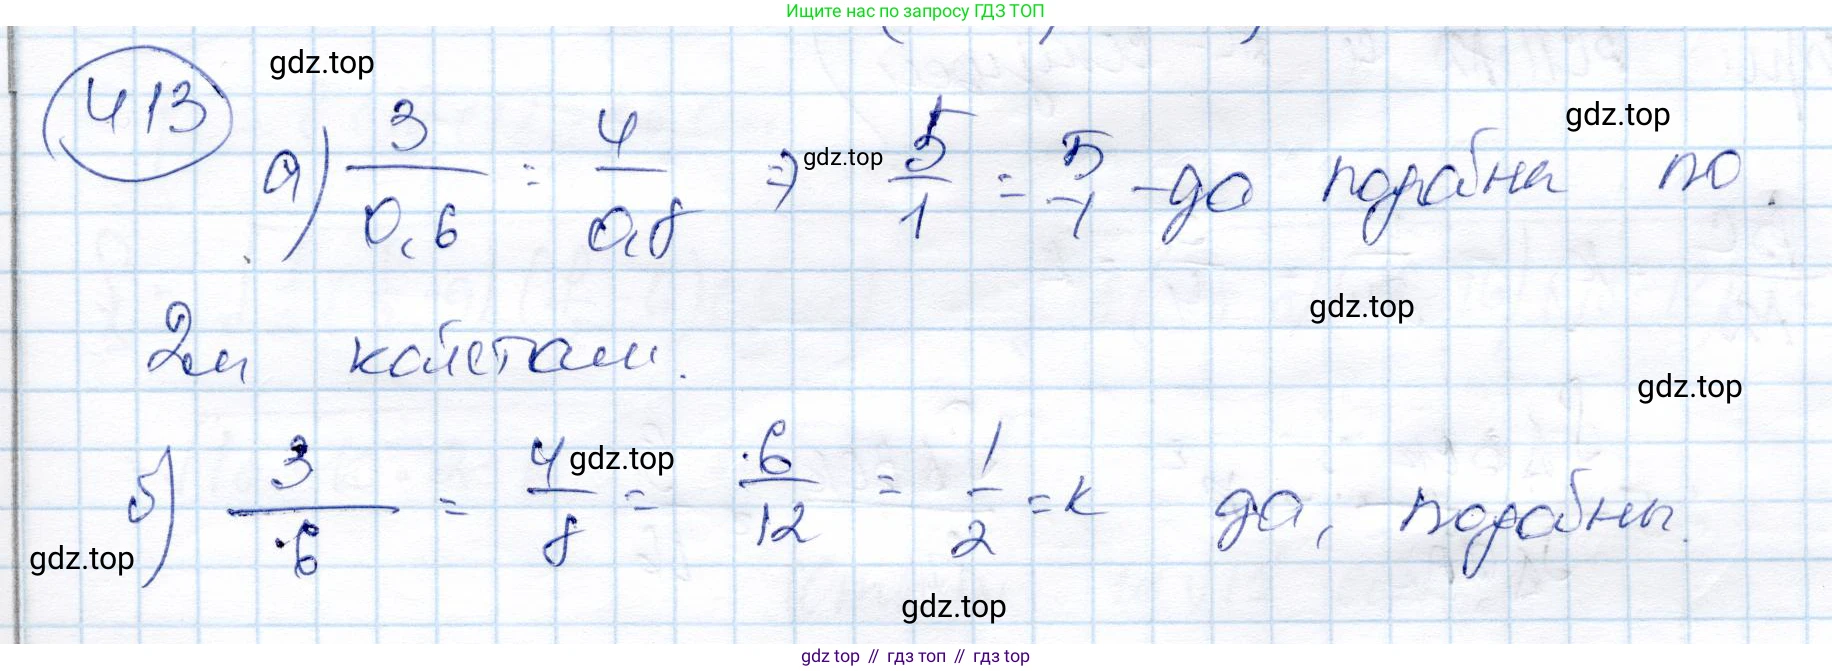 Ищите нас по запросу ГДЗ ТОП
413 gdz.top
а) 3/0,6 = 4/0,8 => gdz.top 5/1 = 5/1 - да подобны по gdz.top
2м катетам. gdz.top
gdz.top
б) 3/6 = 4/8 gdz.top = 6/12 = 1/2 = k да, подобны.
gdz.top
gdz.top
gdz top // гдз топ // гдз top